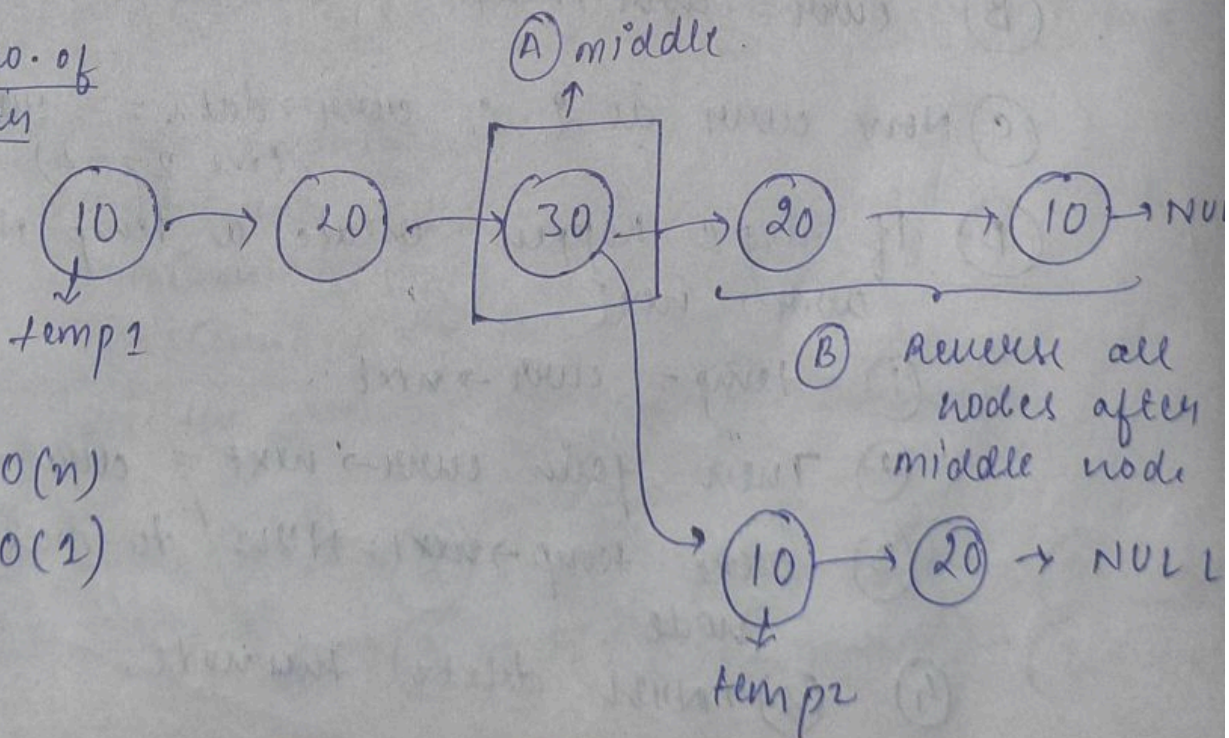 o. of
A middle.
10 → 20 → 30 → 20 → 10 → NUL
temp1
B Reverse all
nodes after
middle node
O(n)
O(1)
10 → 20 → NULL
temp2